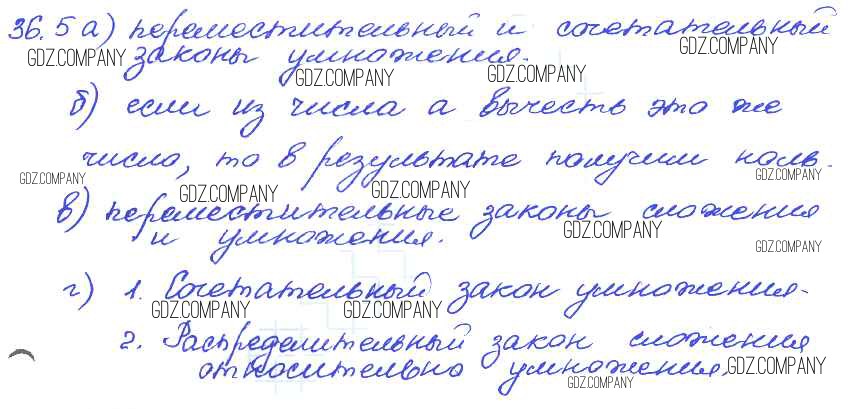 36.5 а) переместительный и сочетательный
GDZ.COMPANY законы умножения. GDZ.COMPANY
GDZ.COMPANY GDZ.COMPANY
б) если из числа а вычесть это же
число, то в результате получим ноль.
GDZ.COMPANY GDZ.COMPANY GDZ.COMPANY GDZ.COMPANY
в) переместительные законы сложения
и умножения. GDZ.COMPANY
GDZ.COMPANY
г) 1. Сочетательный закон умножения.
GDZ.COMPANY GDZ.COMPANY
2. Распределительный закон сложения
относительно умножения. GDZ.COMPANY
GDZ.COMPANY